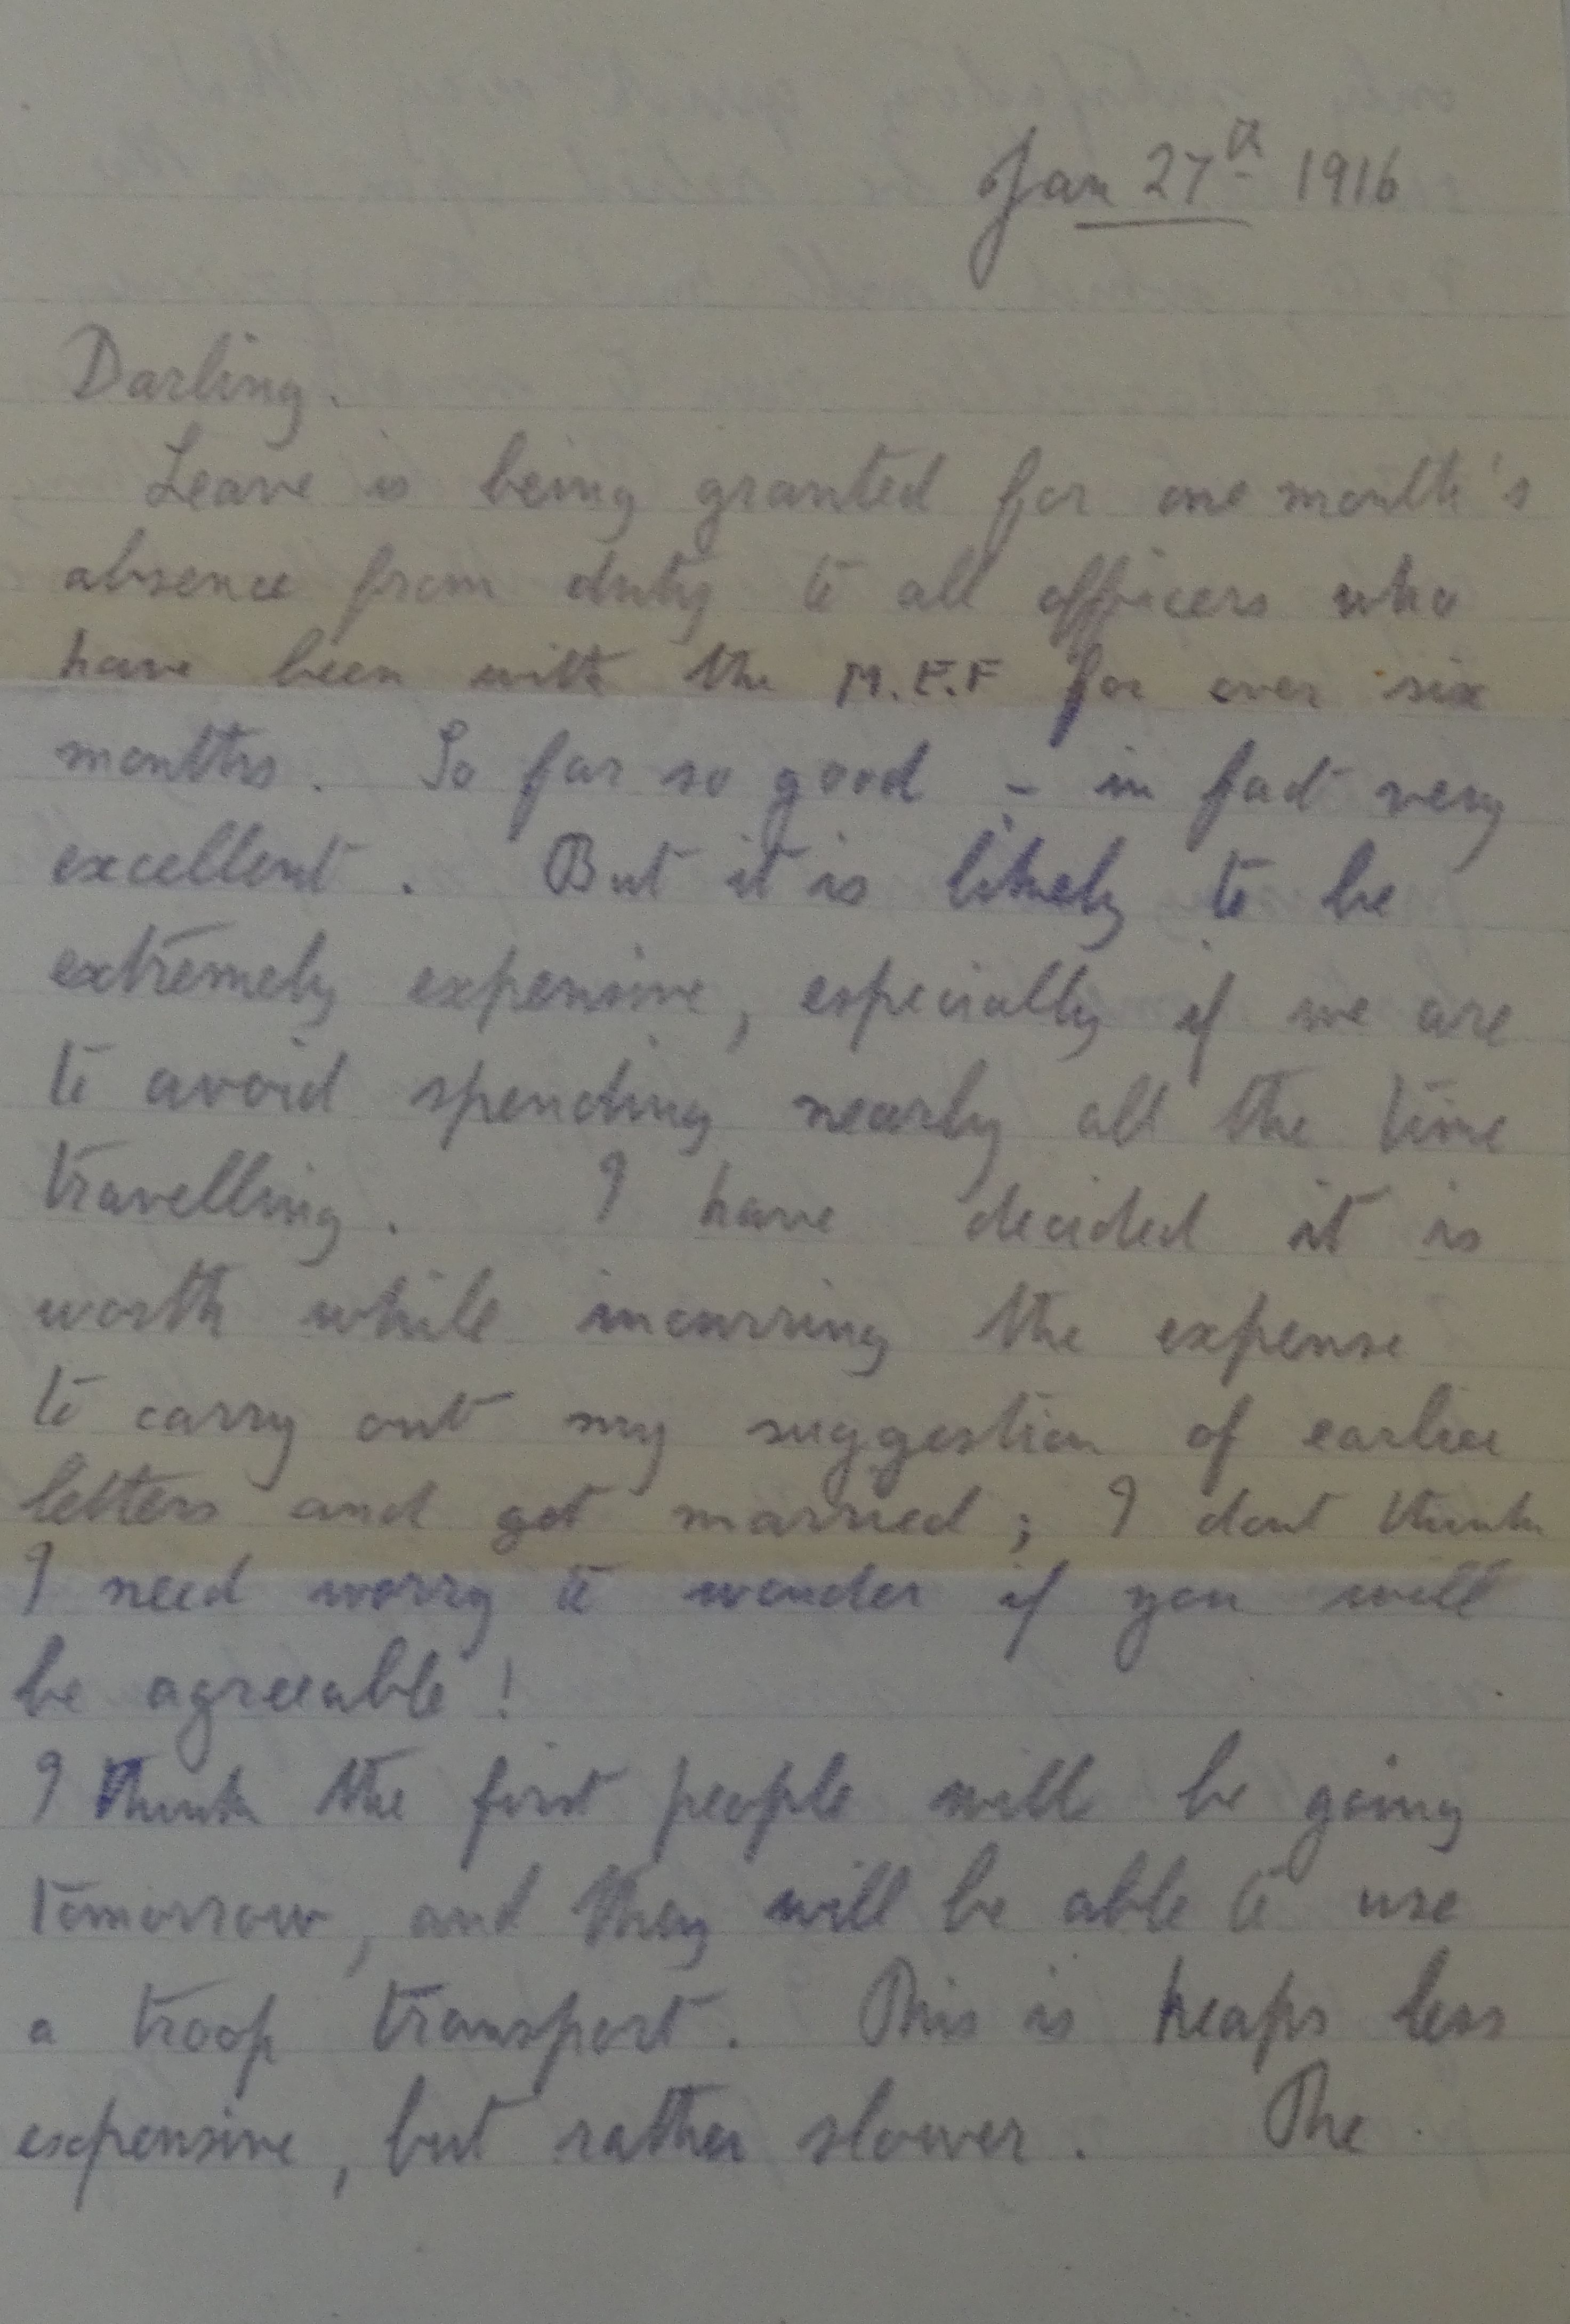 Jan 27th 1916
Darling.
Leave is being granted for one month's
absence from duty to all officers who
have been with the M.E.F for over six
months. So far so good - in fact very
excellent. But it is likely to be
extremely expensive, especially if we are
to avoid spending nearly all the time
travelling. I have decided it is
worth while incurring the expense
to carry out my suggestion of earlier
letters and get married; I dont think
I need worry to wonder if you will
be agreeable!
I think the first people will be going
tomorrow, and they will be able to use
a troop transport. This is heaps less
expensive, but rather slower. The